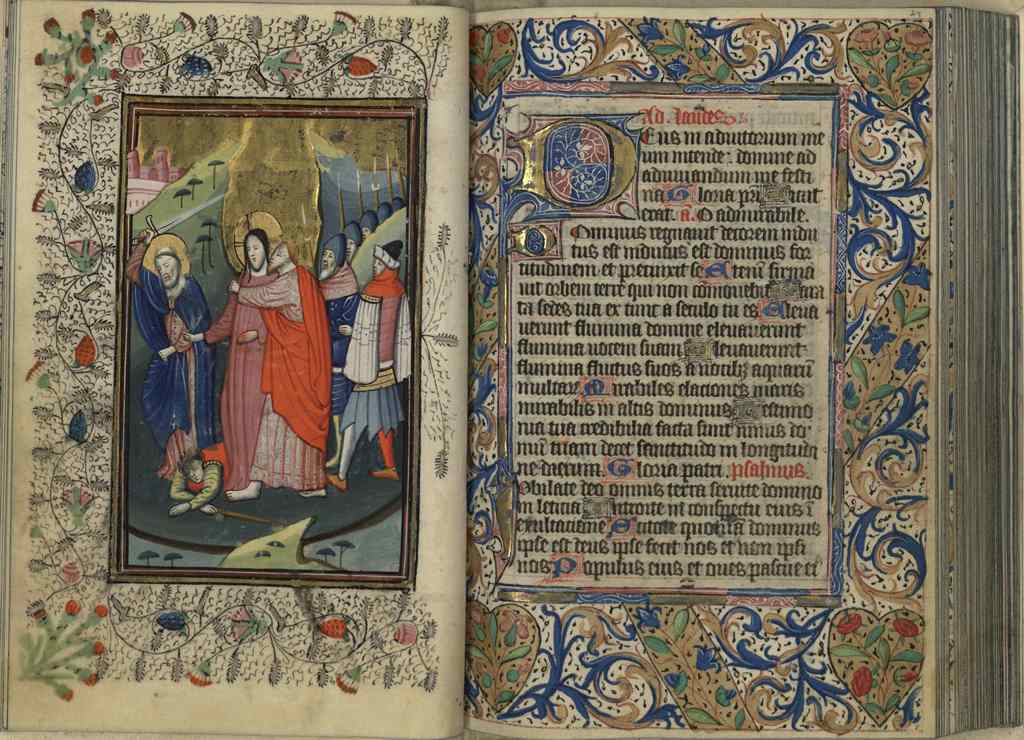 Ad. laudes
Eus in adiutorium me
um intende: domine ad
adiuuandum me festi
na Gloria pri Sicut
erat. a. O admirabile.
Ominus regnauit decorem indu
tus est indutus est dominus for
titudinem et precinxit se Etenim firma
uit orbem terre qui non comouebit Para
ta sedes tua ex tunc a seculo tu es Eleua
uerunt flumina domine eleuauerunt
flumina uocem suam Eleuauerunt
flumina fluctus suos a uocibz aquarum
multar Mirabiles elaciones maris
mirabilis in altis dominus Testimo
nia tua credibilia facta sunt nimis do
mum tuam decet sanctitudo in longitudi
ne dierum. Gloria patri. psalmus.
Iubilate deo omnis terra seruite domino
in leticia Introite in conspectu eius i
exultacione Scitote quoniam dominus
ipse est deus ipse fecit nos et non ipsi
nos Populus eius et oues pascue ei